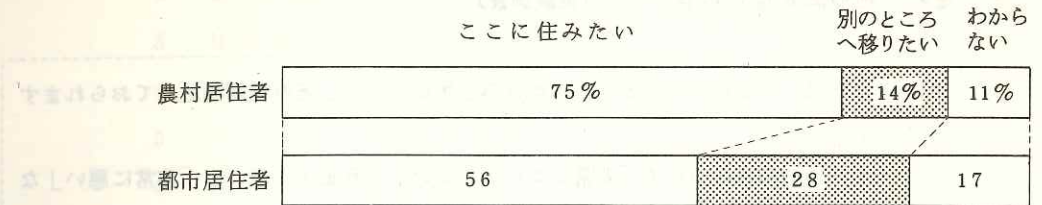 ここに住みたい
別のところ
へ移りたい
わから
ない
農村居住者 75% 14% 11%
都市居住者 56 28 17